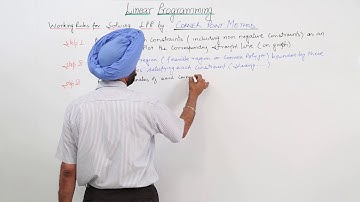 Linear Programming
Working Rules for Solving LPP by CORNER POINT METHOD
Step 1 constraints (including non negative constraints) as an
the corresponding straight line (on graph)
Step 2 region (feasible region or Convex Polygon) bounded by these
satisfying each constraint (shading ....)
Step 3 of each corn